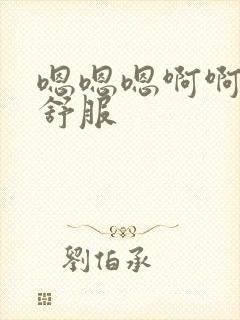 嗯嗯嗯啊啊
舒服
劉伯承